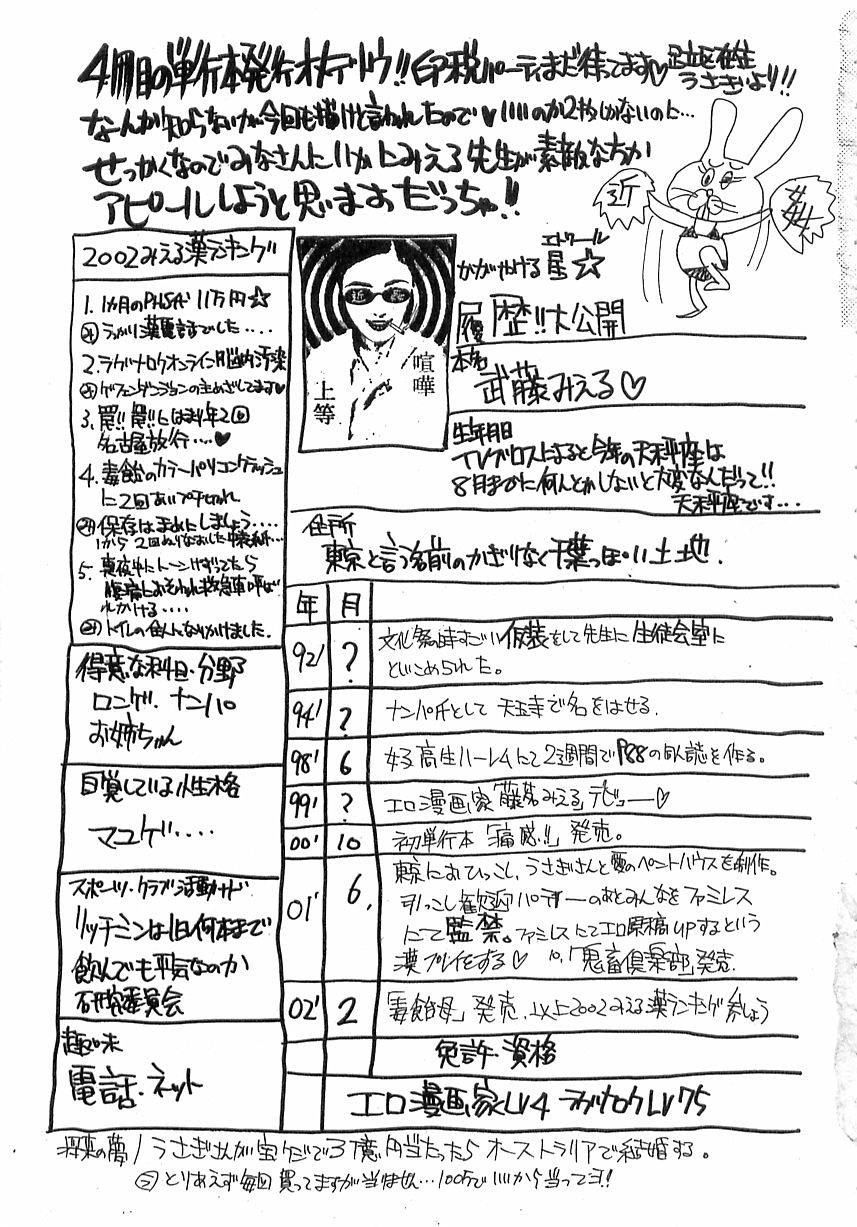 4冊目の単行本発行オメデトウ!!印税パーティまだ待ってます♡足立区在住
うさぎより!!
なーんか知らないが今回も描けと言われたので♥いいのか2枚しかないのに…
せっかくなのでみなさんにいかにみえる先生が素敵な方か
アピールしようと思いますだっちゃ!!
近
2002みえる薬ランキング
1. 1カ月のPHS代 11万円☆
2. ラグナロクオンライン脳内汚染
3. 罠!!罠!!しはま!年2回
名古屋旅行…♥
4. 毒飴のカラーパソコンクラッシュ
に2回あいブチきれ
保存はまめにしましょう…
5. 真夜中にトーンけずってたら
腹痛におそわれ救急車呼ば
れかける…
トイレの住人になりかけました.
得意な科目・分野
ロンゲ. ナンパ
お姉ちゃん
自覚している性格
マユゲ…
スポーツ・クラブ活動など
リッチミンは1日何本まで
飲んでも平気なのか
研究委員会
趣味
電話・ネット
喧嘩
上等
エトワール
かがやける星☆
履歴!!大公開
本名
武藤みえる♡
生年月日
TVブロスによると今年の天秤座は
8月までに何とかしないと大変なんだって!!
天秤座です…
住所
東京と言う名前のかぎりなく千葉っぽい土地.
年 月
92' ? 文化祭の時すごい仮装をして先生に生徒会室に
とじこめられた。
94' ? ナンパ氏として天王寺で名をはせる.
98' 6 女子高生ハーレムにて2週間でP88の同人誌を作る。
99' ? エロ漫画家「藤みえる」デビュー♡
00' 10 初単行本「痛感!!」発売。
01' 6. 東京におひっこし,うさぎさんと愛のペントハウスを制作。
引っこし歓迎パーティーのあとみんなをファミレス
にて監禁。ファミレスにてエロ原稿UPするという
漢プレイをする♡ 10.「鬼畜倶楽部」発売.
02' 2 「毒飴母」発売.以上2002みえる薬ランキング参しょう
免許・資格
エロ漫画家LV4 ラグナロクLV75
将来の夢/うさぎさんが宝クジで3億円当たったらオーストラリアで結婚する。
とりあえず毎回買ってますが当りません…100万でいいから当ってヨ!!